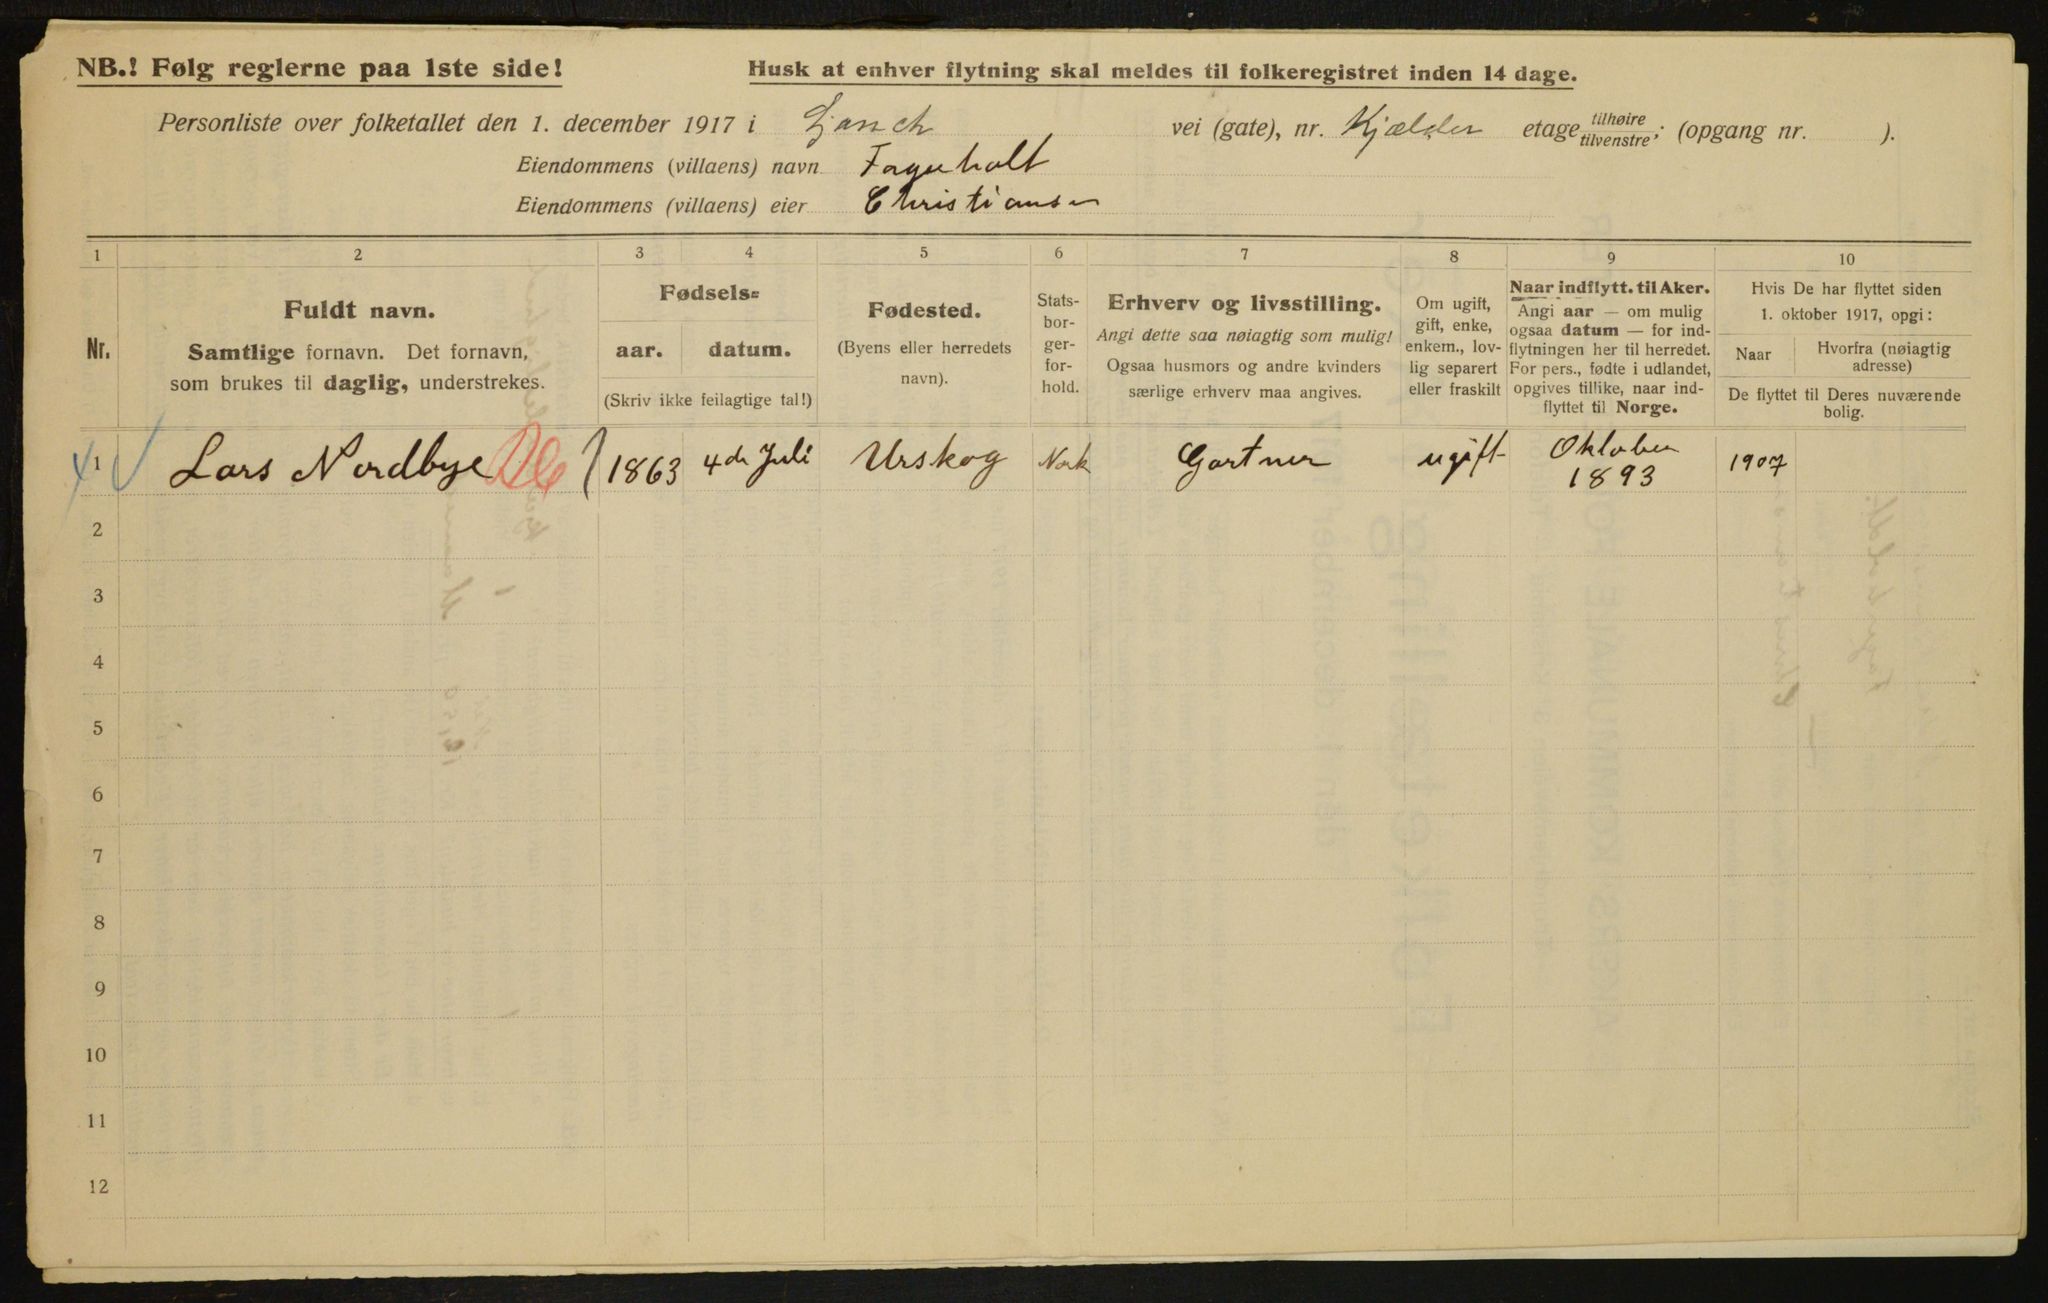 NB.! Følg reglerne paa 1ste side!
Husk at enhver flytning skal meldes til folkeregistret inden 14 dage.
Personliste over folketallet den 1. december 1917 i vei (gate), nr. Kjælder etage tilhøire tilvenstre; (opgang nr. ).
Eiendommens (villaens) navn Fagerholt
Eiendommens (villaens) eier Christiansen
1 2 3 4 5 6 7 8 9 10
Nr.
Fuldt navn.
Samtlige fornavn. Det fornavn,
som brukes til daglig, understrekes.
Fødsels=
aar. datum.
(Skriv ikke feilagtige tal!)
Fødested.
(Byens eller herredets
navn).
Stats-
bor-
ger-
for-
hold.
Erhverv og livsstilling.
Angi dette saa nøiagtig som mulig!
Ogsaa husmors og andre kvinders
særlige erhverv maa angives.
Om ugift,
gift, enke,
enkem., lov-
lig separert
eller fraskilt
Naar indflytt. til Aker.
Angi aar — om mulig
ogsaa datum — for ind-
flytningen her til herredet.
For pers., fødte i utlandet,
opgives tillike, naar ind-
flyttet til Norge.
Hvis De har flyttet siden
1. oktober 1917, opgi:
Naar
Hvorfra (nøiagtig
adresse)
De flyttet til Deres nuværende
bolig.
1 Lars Nordbye 1863 4de Juli Urskog Nork Gartner ugift Oktober 1893 1907
2
3
4
5
6
7
8
9
10
11
12